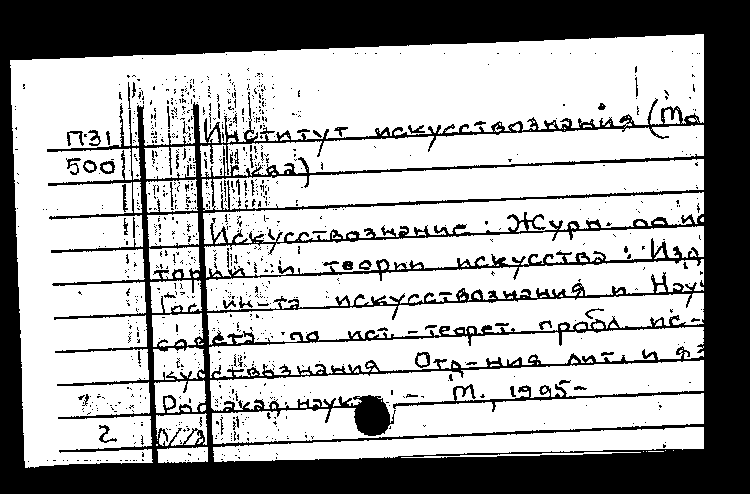 П31 Институт искусствознания (Мо
500 сква)
Искусствознание : Журн. по ис
тории и теории искусства : Изд
Гос ин-та искусствознания и Нау
совета по ист.-теорет. пробл. ис-
кусствознания Отд-ния лит. и яз
Рос акад. наук. - М., 1995-
2